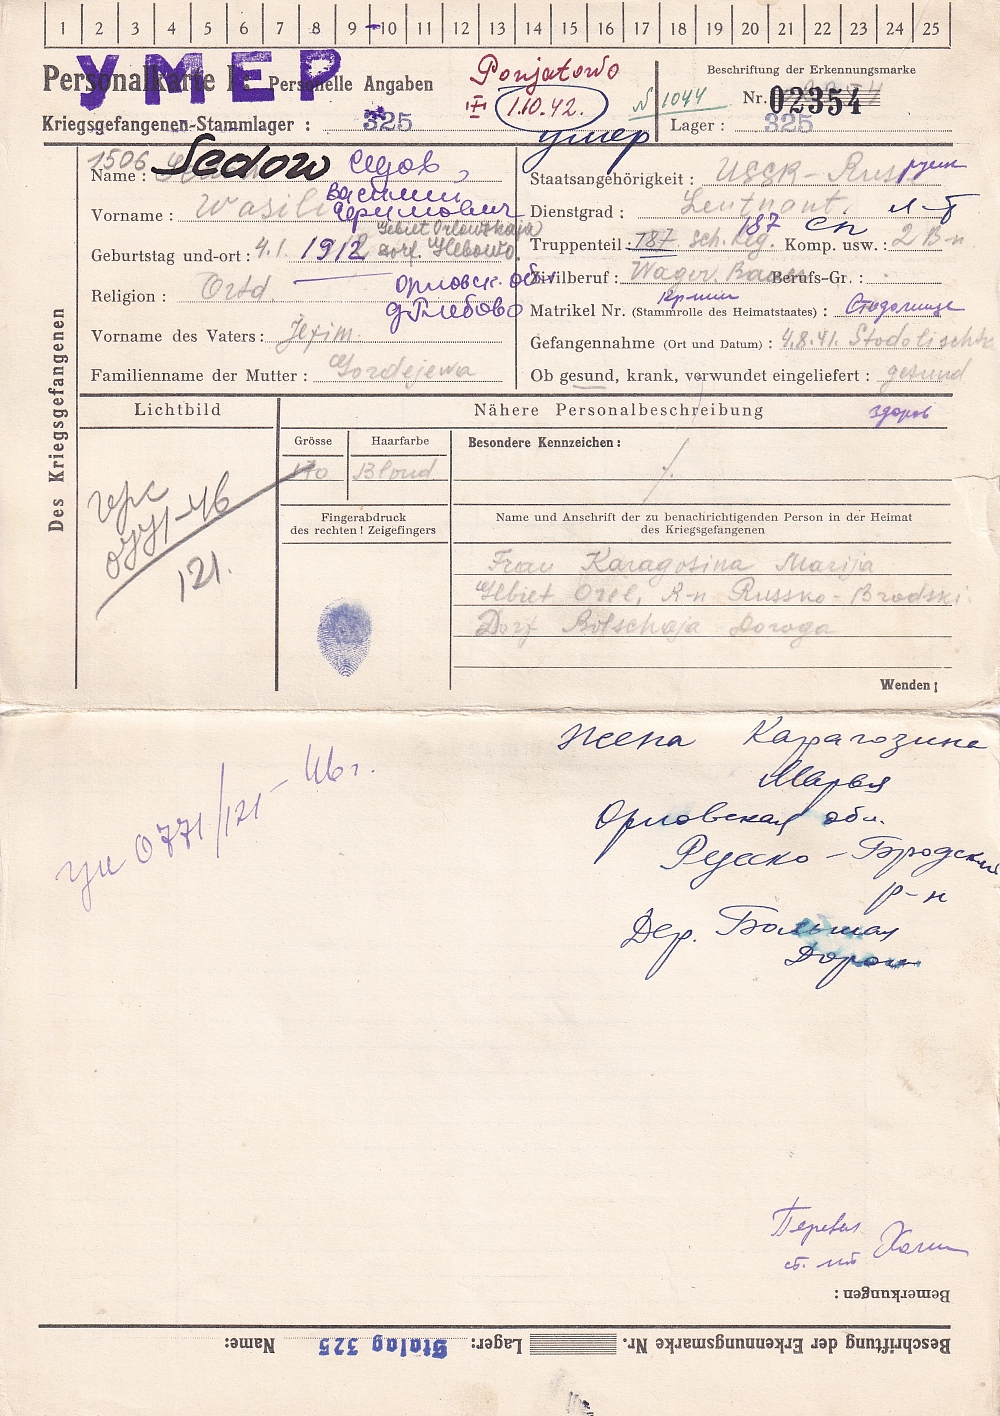 1 2 3 4 5 6 7 8 9 10 11 12 13 14 15 16 17 18 19 20 21 22 23 24 25
УМЕР
Personalkarte I: Personelle Angaben
Kriegsgefangenen-Stammlager : 325
Ponjatowo
1.10.42.
умер
N 1044
Beschriftung der Erkennungsmarke
Nr. 02354
Lager : 325
Des Kriegsgefangenen
1506
Name : Sedow Седов
Vorname : Wasili Василий
Ефимович
Geburtstag und-ort : 4.1. 1912 Gebiet Orlowskaja
dorf. Glebowo
Орловск. обл
Religion : Ortd.
д. Глебово
Vorname des Vaters : Jefim.
Familienname der Mutter : Gordejewa
Staatsangehörigkeit : USSR - Russ русск
Dienstgrad : Leutnant. л-т
Truppenteil : 787 Sch. Reg. 187 сп Komp. usw. : 2 B-n
Zivilberuf : Bauer Berufs-Gr. :
Matrikel Nr. (Stammrolle des Heimatstaates) : Стодолище
Gefangennahme (Ort und Datum) : 4.8.41. Stodolischtsche
Ob gesund, krank, verwundet eingeliefert : gesund
здоров
Lichtbild
Nähere Personalbeschreibung
Grösse
Haarfarbe
Besondere Kennzeichen :
170
Blond
./.
0771-46
121.
Fingerabdruck
des rechten ! Zeigefingers
Name und Anschrift der zu benachrichtigenden Person in der Heimat
des Kriegsgefangenen
Frau Karagosina Marija
Gebiet Orel, R-n Russko-Brodski
Dorf Bolschaja Doroga
Wenden !
Жена Карагозина
Марья
Орловская обл.
Русско-Бродский
р-н
Дер. Большая
Дорога
0771/121-46г.
Перевел
ст. л-т
Bemerkungen :
Beschriftung der Erkennungsmarke Nr. Lager: Stalag 325 Name: